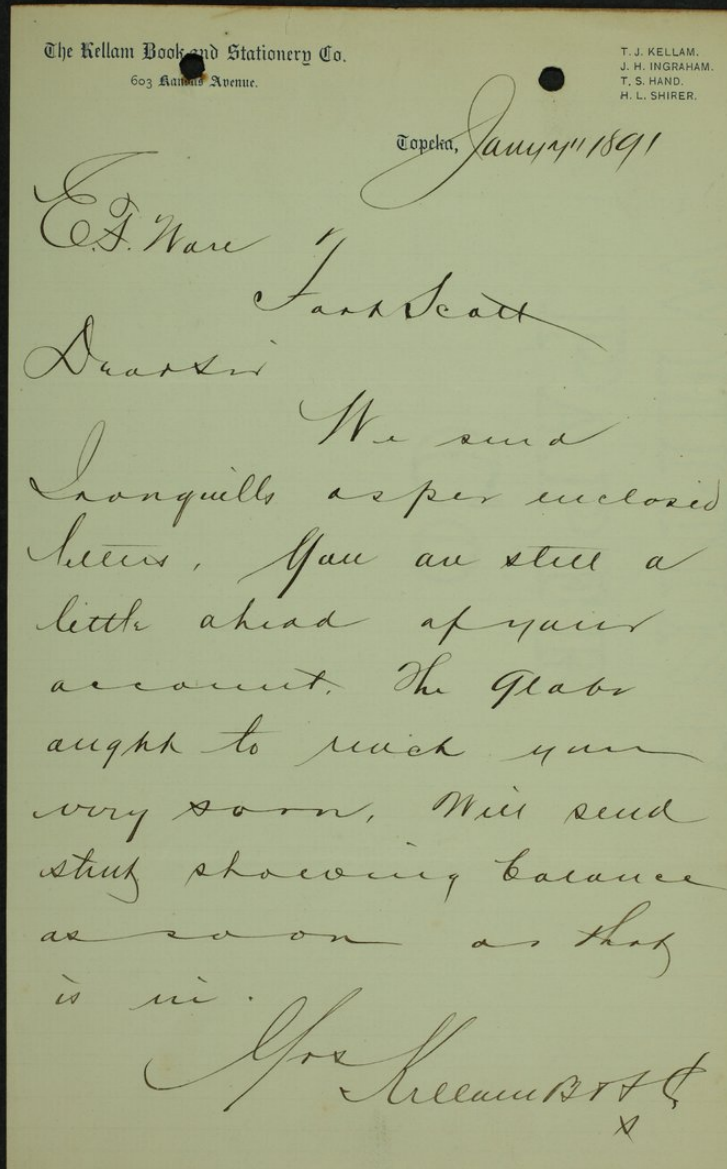 The Kellam Book and Stationery Co.
603 Kansas Avenue.
T. J. KELLAM.
J. H. INGRAHAM.
T. S. HAND.
H. L. SHIRER.
Topeka, Jany 7" 1891
E. F. Ware
Fort Scott
Dear Sir
We send
Ironquills as per enclosed
letters. You are still a
little ahead of your
account. The Globe
ought to reach you
very soon. Will send
stmt showing balance
as soon as that
is in.
Yrs
Kellam B & S Co